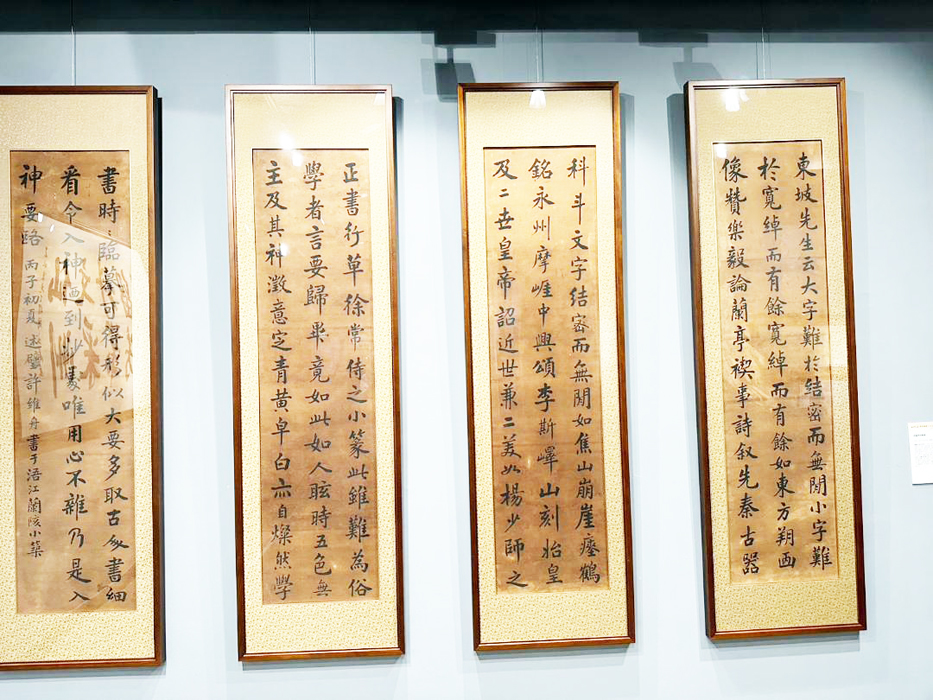 東坡先生云大字難於結密而無閒小字難
於寬綽而有餘寬綽而有餘如東方朔画
像贊樂毅論蘭亭禊事詩叙先秦古器
科斗文字結密而無閒如焦山崩崖瘞鶴
銘永州摩崖中興頌李斯嶧山刻始皇
及二世皇帝詔近世兼二美如楊少師之
正書行草徐常侍之小篆此雖難為俗
學者言要歸畢竟如此如人眩時五色無
主及其神澂意定青黃皁白亦自燦然學
書時〻臨摹可得形似大要多取古人書細
看令入神迺到妙處唯用心不雜乃是入
神要路 丙子初夏 許維舟書于浯江蘭陔小築